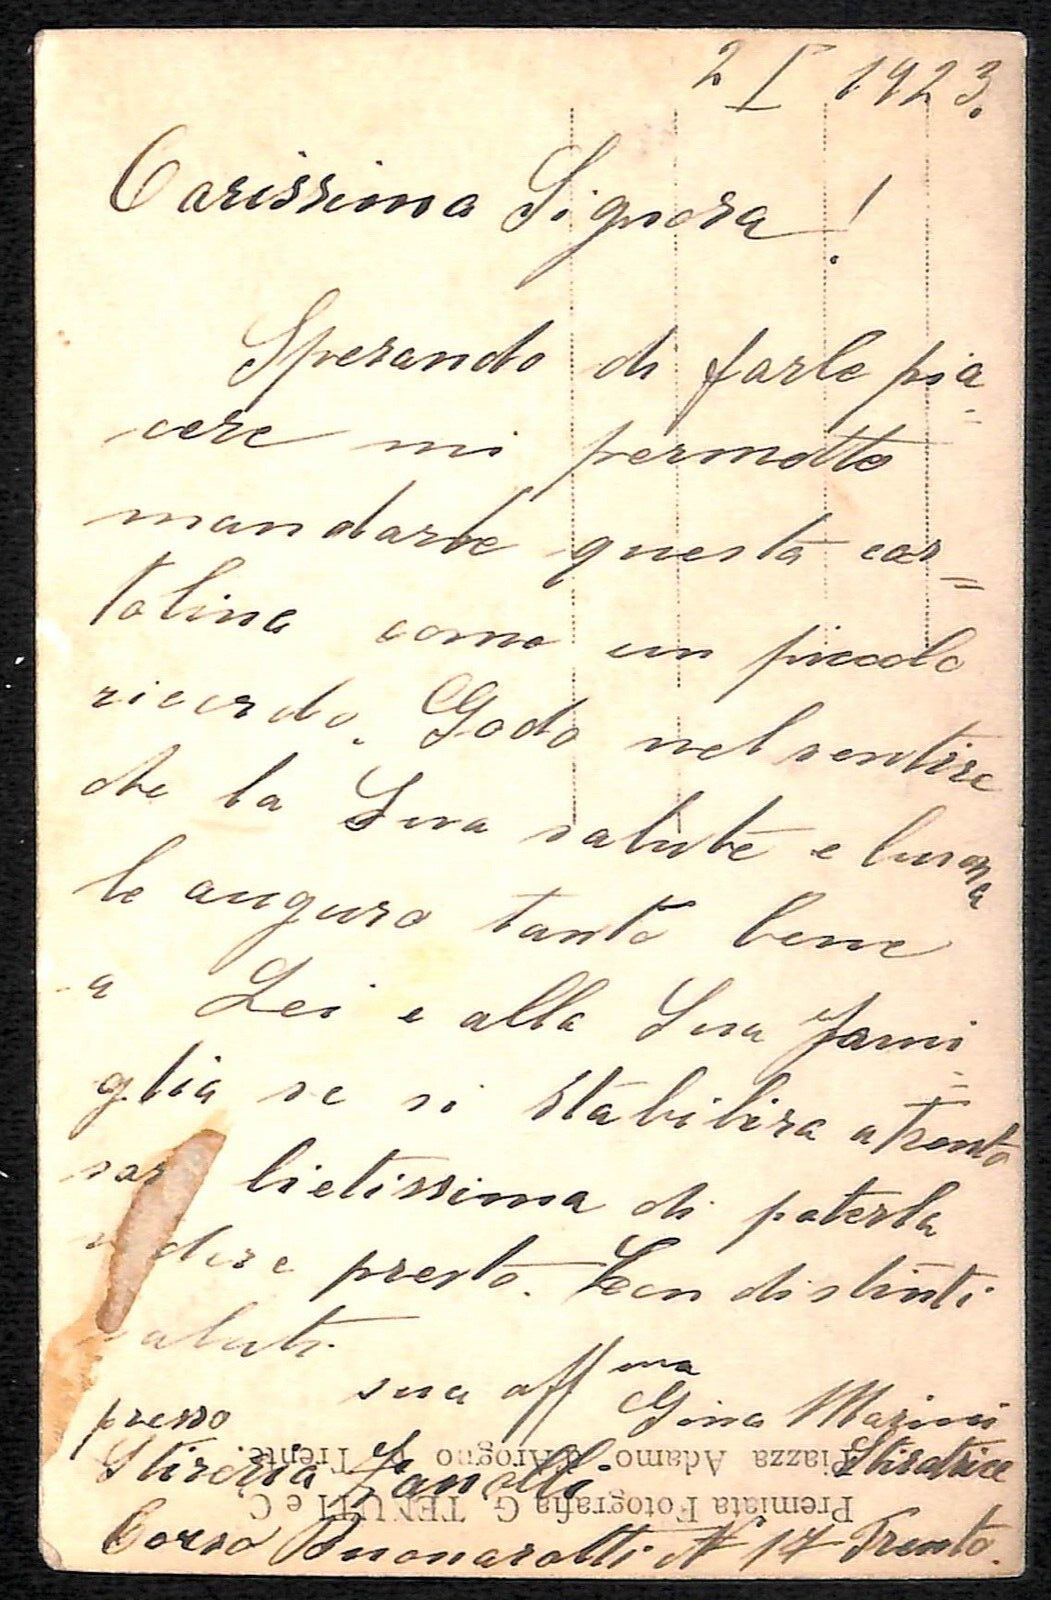 2 I 1923.
Carissima Signora!
Sperando di farle pia-
cere mi permetto
mandarle questa car=
tolina come un piccolo
ricordo. Godo nel sentire
che la Sua salute e buona
le auguro tanto bene
a Lei e alla Sua fami=
glia se si stabilira a Trento
sar lietissima di poterla
dere presto. Con distinti
aluti.
sua aff ma
Gina Marini
presso Stiratrice
Stireria Zanolli
Corso Buonarotti N 17 Trento.
Premiata Fotografia G. TENUTI e C.
Piazza Adamo d'Arogno Trento.